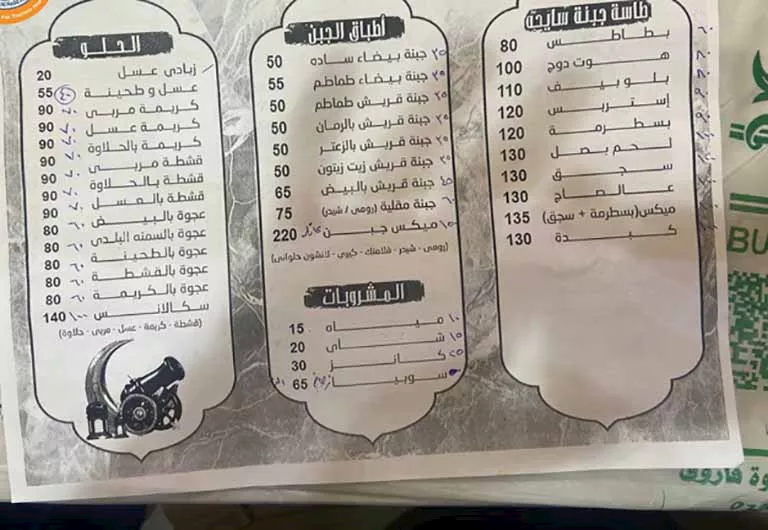 طاسة جبنة سايحة
بطاطس 80
هوت دوج 100
بلوبيف 110
إستربس 120
بسطرمة 120
لحم بصل 130
سجق 130
عالصاج 130
ميكس (بسطرمة + سجق) 135
كبدة 130
أطباق الجبن
جبنة بيضاء ساده 50
جبنة بيضاء طماطم 55
جبنة قريش طماطم 50
جبنة قريش بالرمان 50
جبنة قريش بالزعتر 50
جبنة قريش زيت زيتون 50
جبنة قريش بالبيض 65
جبنة مقلية (رومى / شيدر) 75
ميكس جبن 220
(رومى - شيدر - فلامنك - كيري - لانشون حلوانى)
المشروبات
مياه 15
شاى 20
كانز 30
سوبيا 65
الحلو
زبادى عسل 20
عسل و طحينة 55
كريمة مربى 90
كريمة عسل 90
كريمة بالحلاوة 90
قشطة مربى 90
قشطة بالحلاوة 90
قشطة بالعسل 90
عجوة بالبيض 80
عجوة بالسمنه البلدى 80
عجوة بالطحينة 80
عجوة بالقشطة 80
عجوة بالكريمة 80
سكالانس 140
(قشطة - كريمة - عسل - مربى - حلاوة)
BU